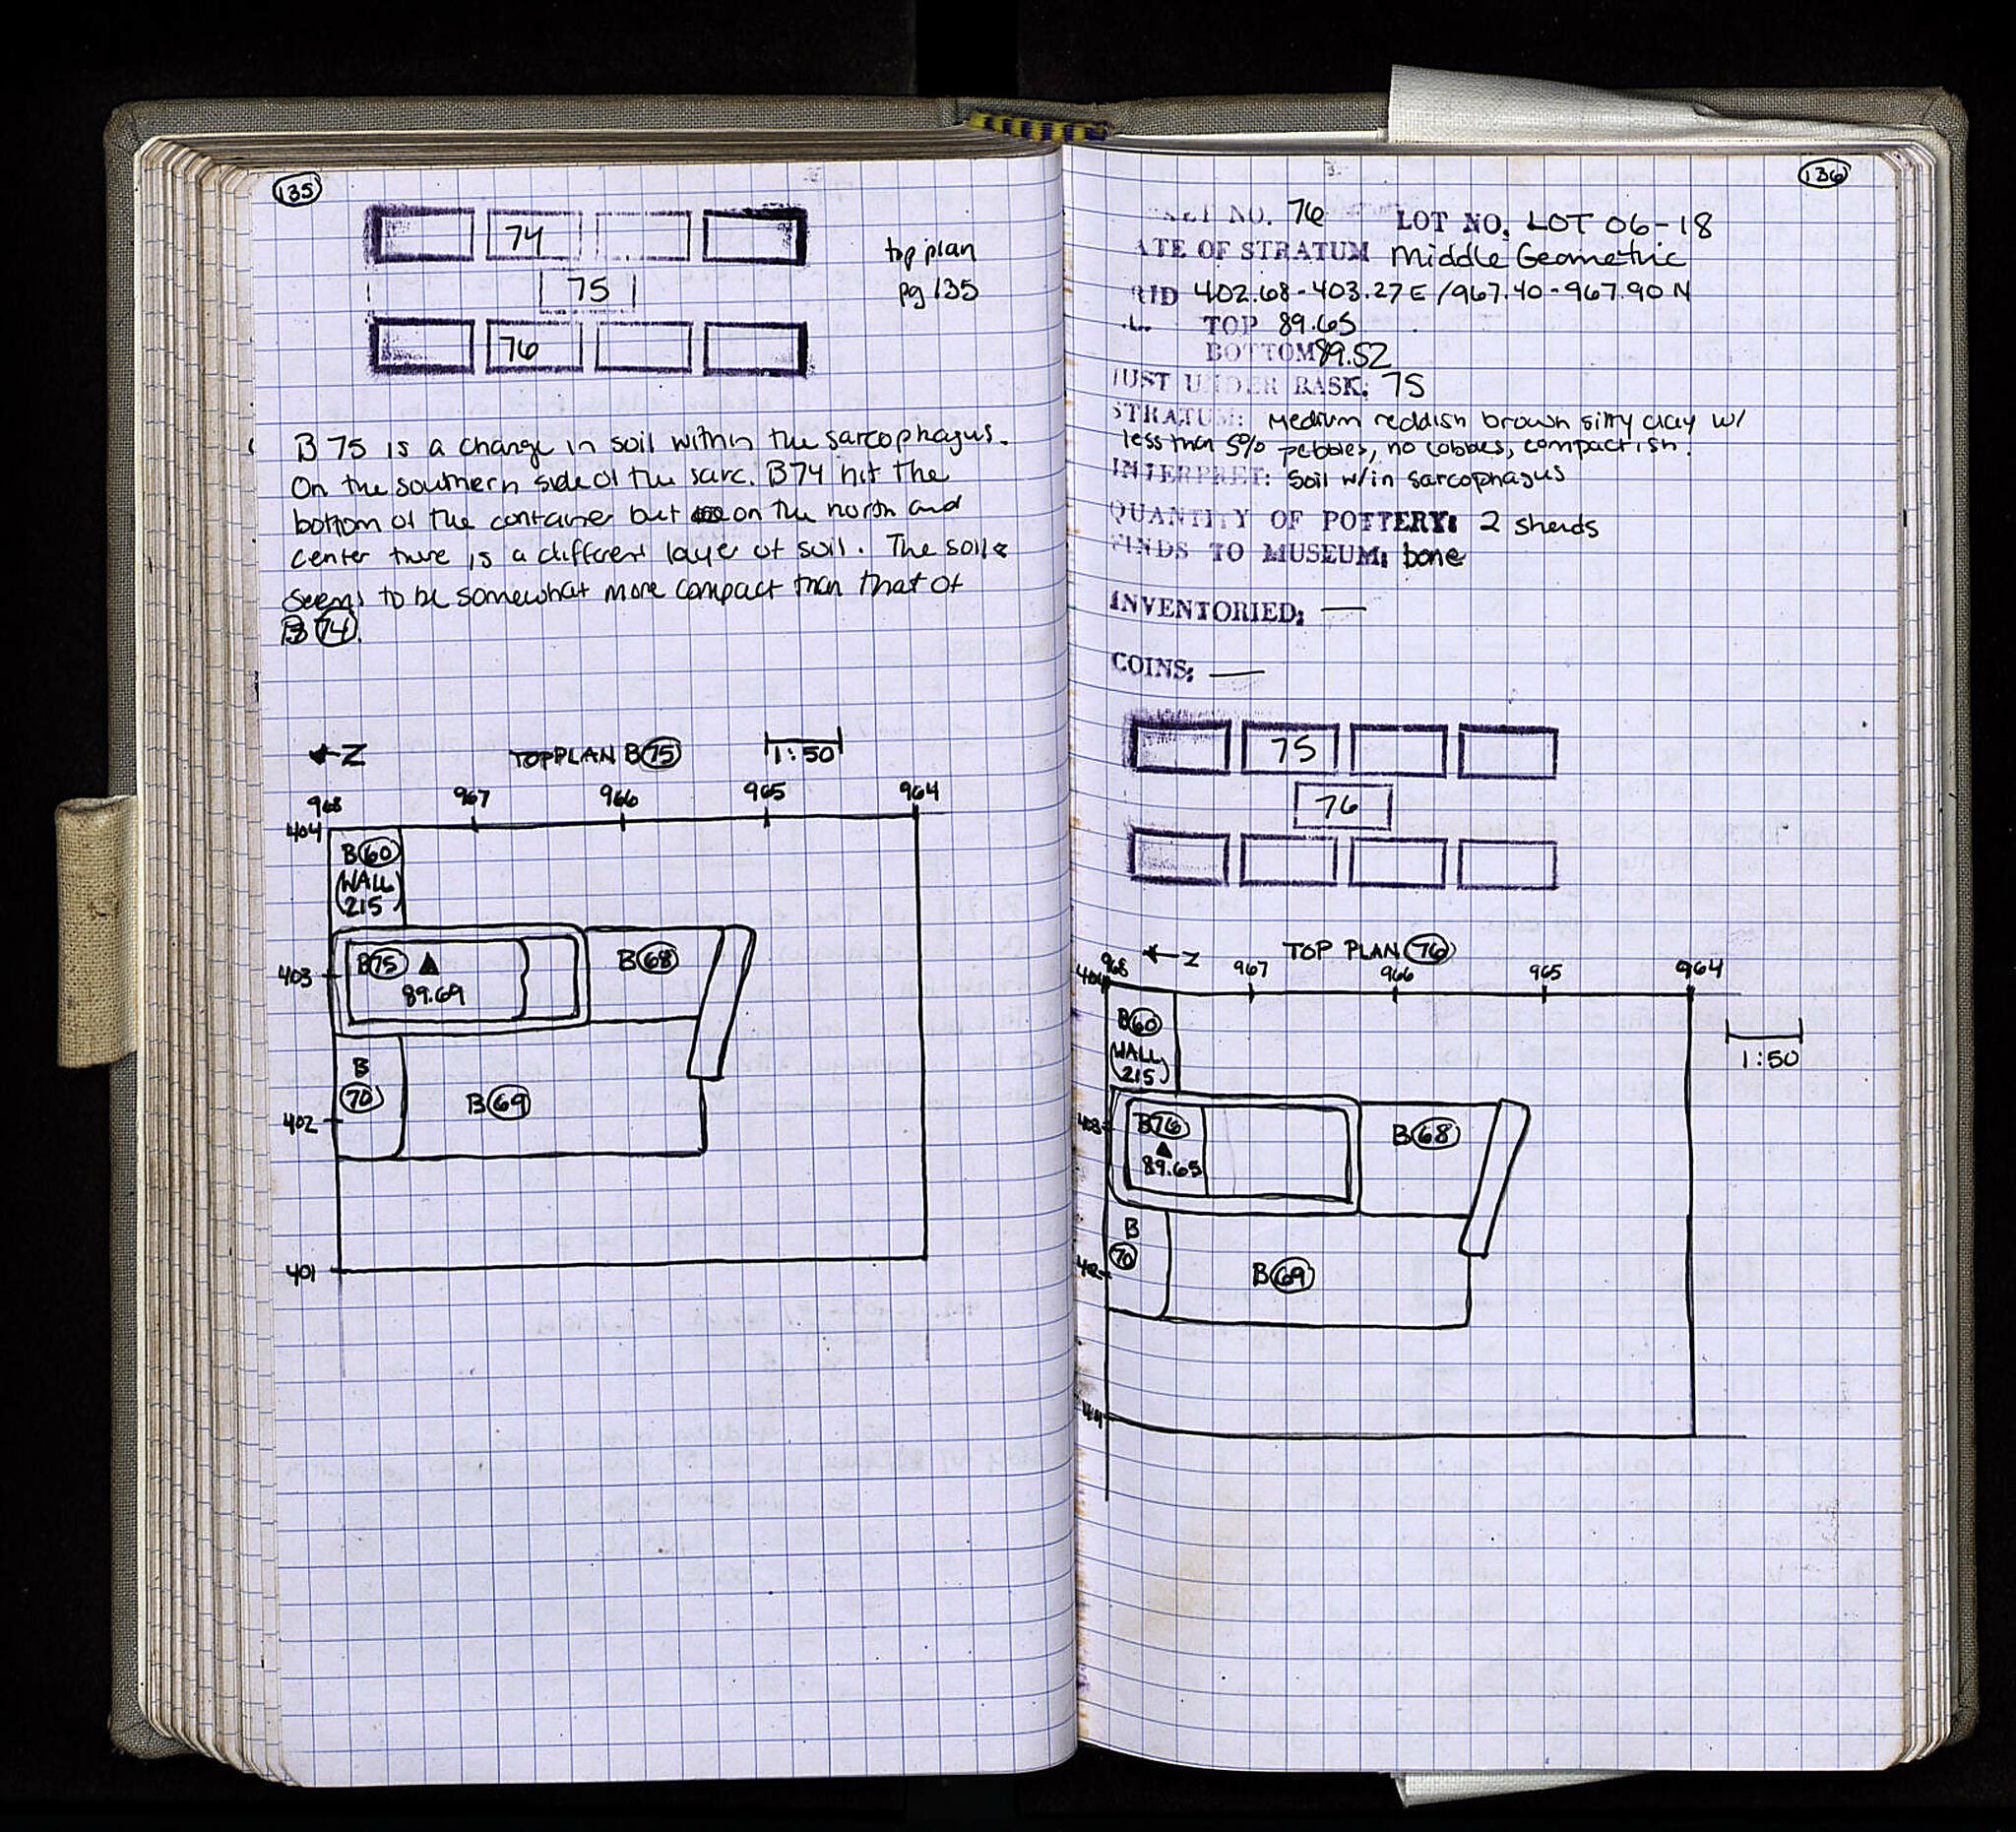 135
74
75
76
top plan
pg 135
B 75 is a change in soil within the sarcophagus.
On the southern side of the sarc. B74 hit the
bottom of the container but on the north and
center there is a different layer of soil. The soil
seems to be somewhat more compact than that of
B 74.
Z
TOP PLAN B 75
1:50
968 967 966 965 964
404
B 60
WALL
215
403
B 75
89.69
B 68
B
70
402
B 69
401
136
NO. 76 LOT NO. LOT 06-18
ATE OF STRATUM Middle Geometric
RID 402.68-403.27 E / 967.40-967.90 N
TOP 89.65
BOTTOM 89.52
JUST UNDER BASK: 75
STRATUM: Medium reddish brown silty clay w/
less than 5% pebbles, no cobbles, compactish.
INTERPRET: Soil w/in sarcophagus
QUANTITY OF POTTERY: 2 sherds
FINDS TO MUSEUM: bone
INVENTORIED: —
COINS: —
75
76
Z
TOP PLAN 76
968 967 966 965 964
404
B 60
WALL
215
1:50
403
B 76
89.65
B 68
B
70
402
B 69
401